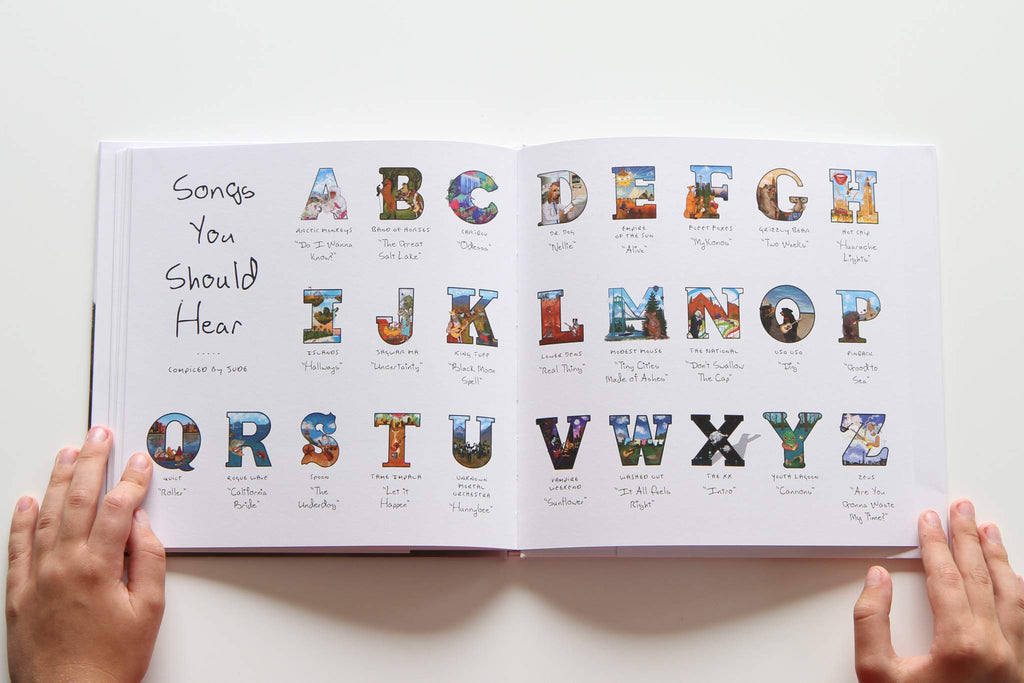 Songs
You
Should
Hear
.....
COMPILED BY JUDE
A
ARCTIC MONKEYS
"Do I Wanna
Know?"
B
BAND OF HORSES
"The Great
Salt Lake"
C
CARIBOU
"Odessa"
D
DR. DOG
"Nellie"
E
EMPIRE
OF THE SUN
"Alive"
F
FLEET FOXES
"Mykonos"
G
GRIZZLY BEAR
"Two Weeks"
H
HOT CHIP
"Huarache
Lights"
I
ISLANDS
"Hallways"
J
JAGUAR MA
"Uncertainty"
K
KING TUFF
"Black Moon
Spell"
L
LOWER DENS
"Real Thing"
M
MODEST MOUSE
"Tiny Cities
Made of Ashes"
N
THE NATIONAL
"Don't Swallow
The Cap"
O
OSO OSO
"Dig"
P
PINBACK
"Good to
Sea"
Q
QUILT
"Roller"
R
ROGUE WAVE
"California
Bride"
S
SPOON
"The
Underdog"
T
TAME IMPALA
"Let it
Happen"
U
UNKNOWN
MORTAL
ORCHESTRA
"Hunnybee"
V
VAMPIRE
WEEKEND
"Sunflower"
W
WASHED OUT
"It All Feels
Right"
X
THE XX
"Intro"
Y
YOUTH LAGOON
"Cannons"
Z
ZEUS
"Are You
Gonna Waste
My Time?"